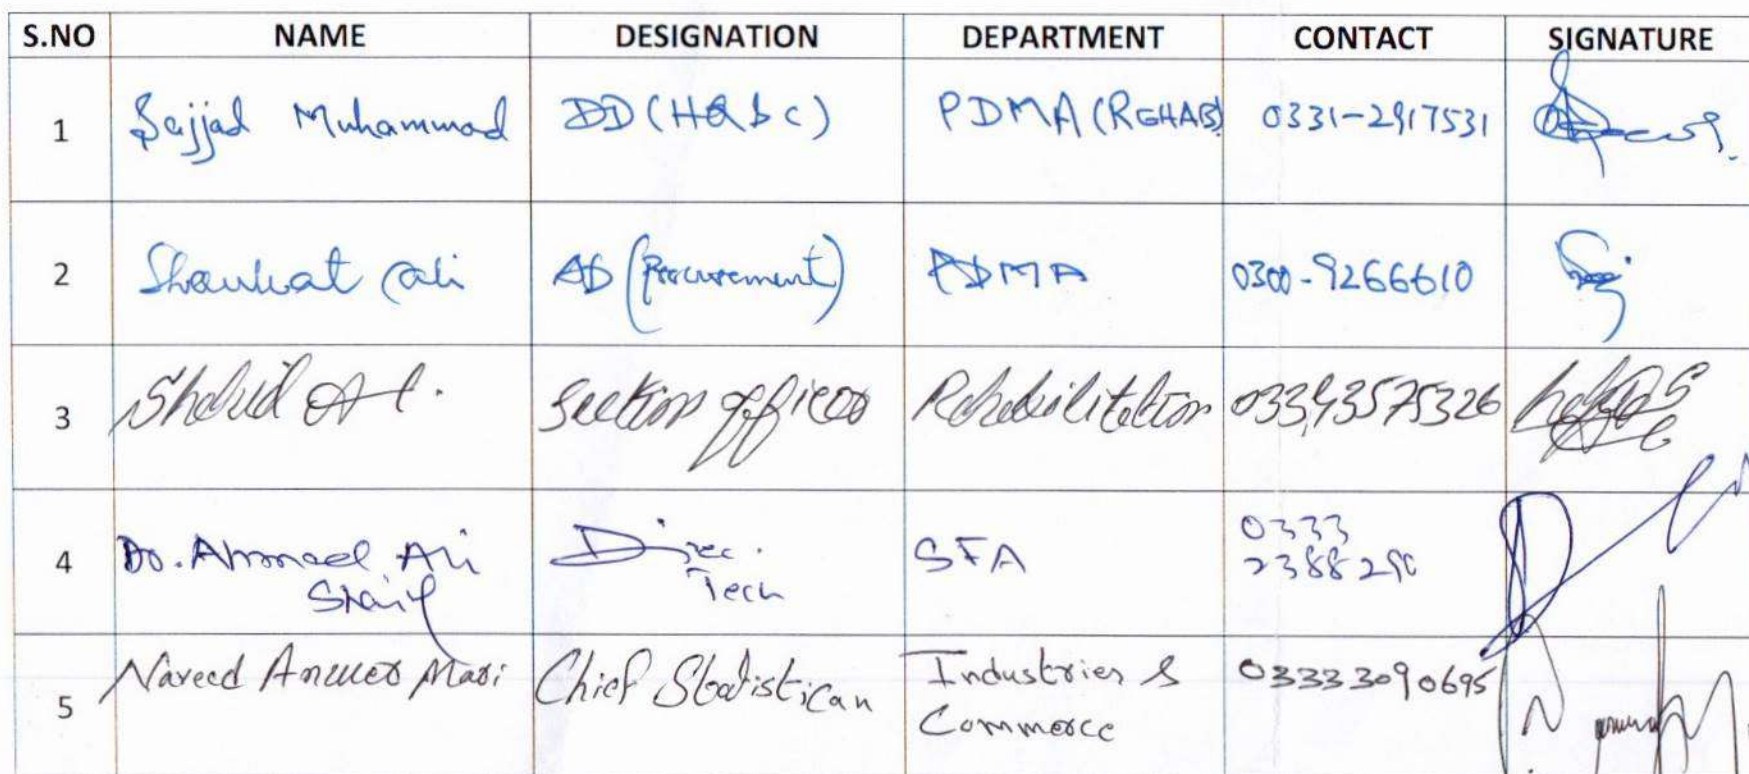 S.NO NAME DESIGNATION DEPARTMENT CONTACT SIGNATURE
1 Sajjad Muhammad DD (HQ & C) PDMA (REHAB) 0331-2917531
2 Shaukat Ali AD (Procurement) PDMA 0300-9266610
3 Shahid Al. Section officer Rehabilitation 03343575326
4 Dr. Ahmed Ali Direc. SFA 0333
Tech 2388290
5 Naveed Anwer Mari Chief Statistican Industries &
Commerce 03333090695